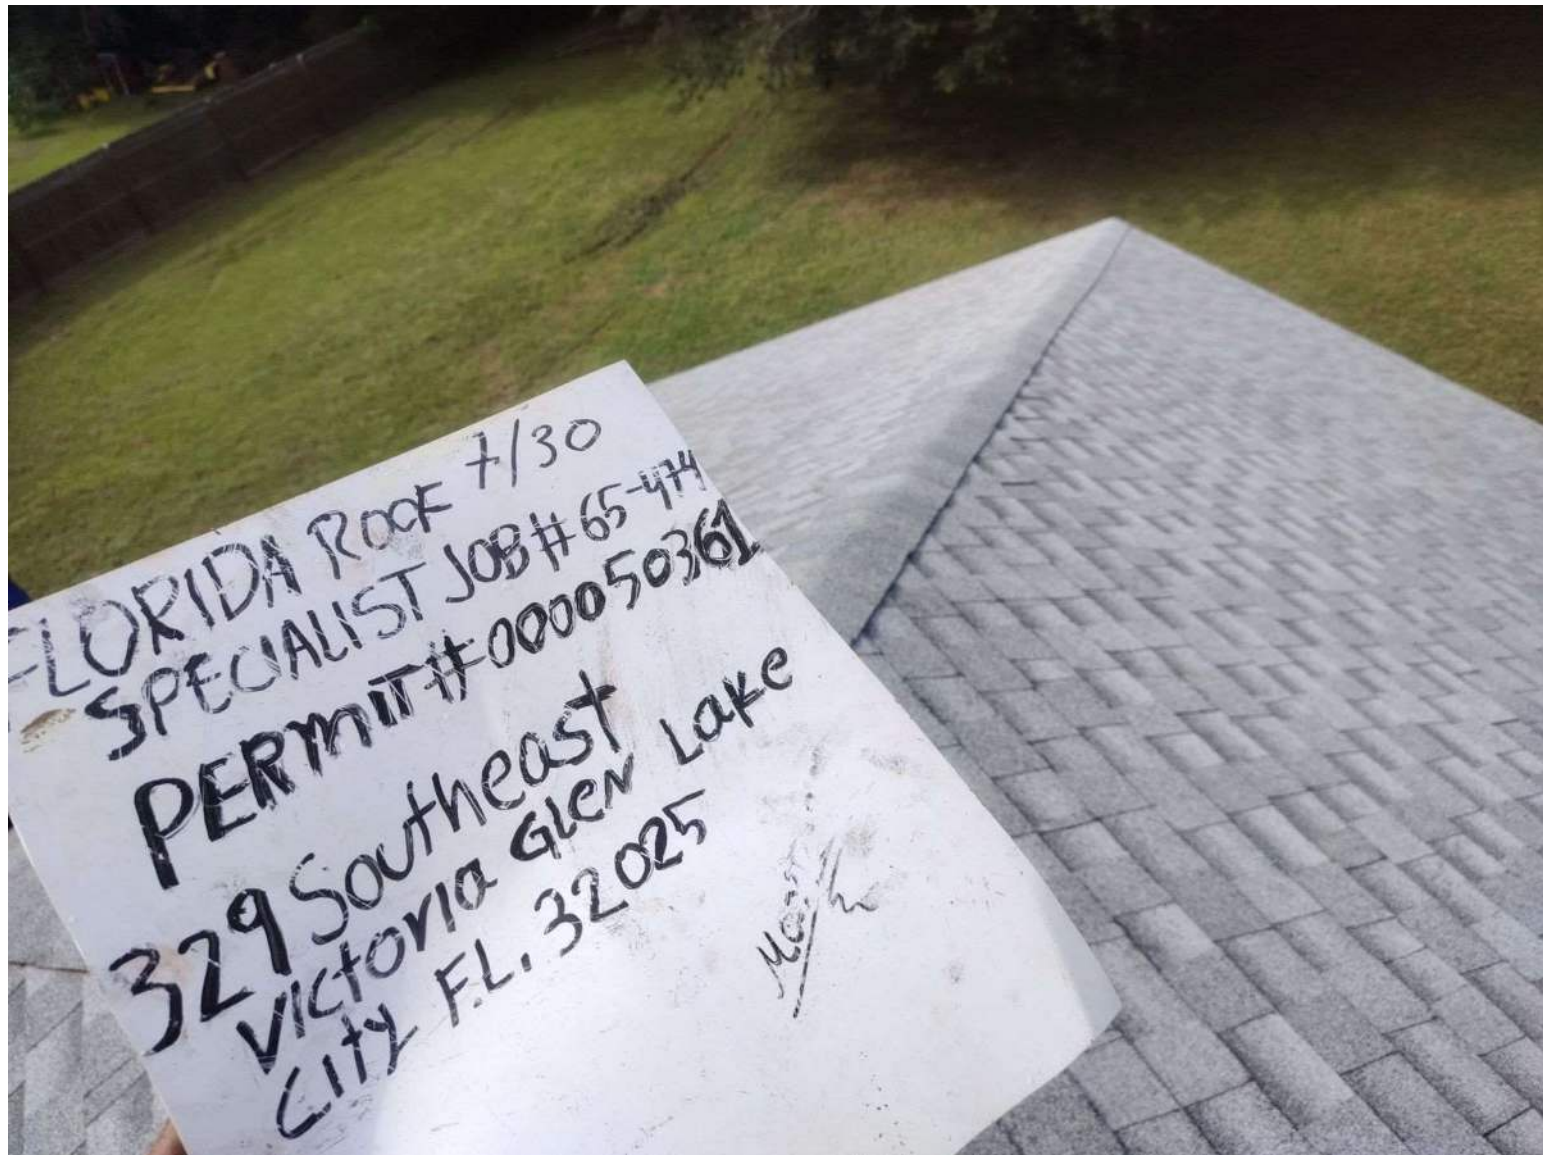 FLORIDA ROOF 7/30
SPECIALIST JOB# 65-474
PERMIT# 000050361
329 Southeast
Victoria Glen Lake
City F.L. 32025